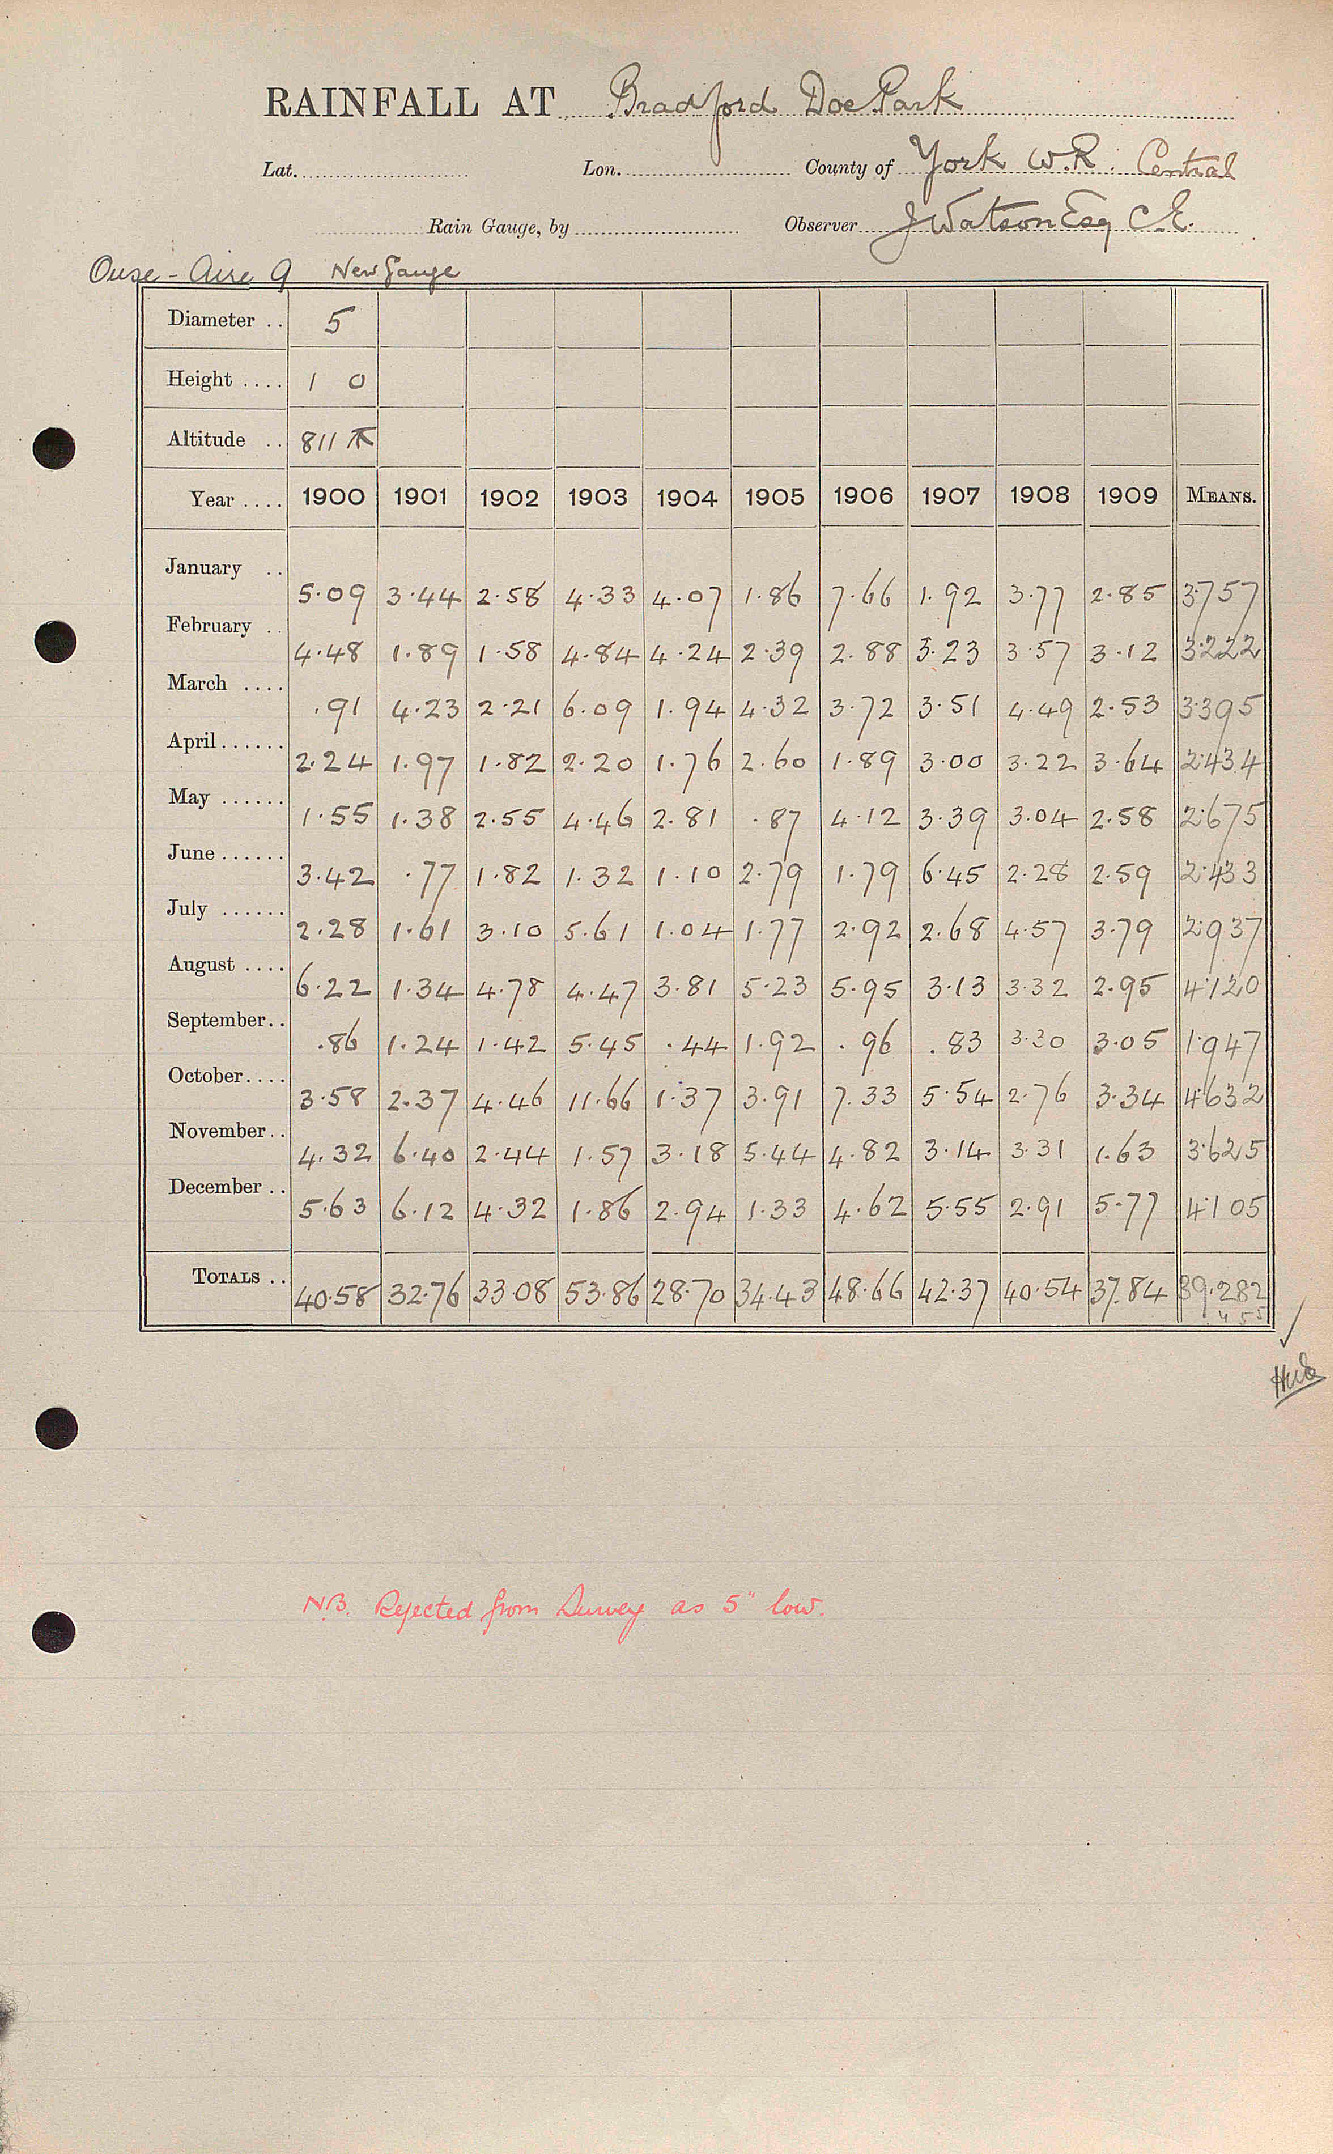 RAINFALL AT Bradford Doe Park
Lat. Lon. County of York W.R. Central
Rain Gauge, by Observer J Watson Esq C.E.
Ouse - Aire 9 New Gauge
Diameter .. 5
Height .... 1 0
Altitude .. 811
Year .... 1900 1901 1902 1903 1904 1905 1906 1907 1908 1909 MEANS.
January .. 5.09 3.44 2.58 4.33 4.07 1.86 7.66 1.92 3.77 2.85 3.757
February .. 4.48 1.89 1.58 4.84 4.24 2.39 2.88 3.23 3.57 3.12 3.222
March .... .91 4.23 2.21 6.09 1.94 4.32 3.72 3.51 4.49 2.53 3.395
April ...... 2.24 1.97 1.82 2.20 1.76 2.60 1.89 3.00 3.22 3.64 2.434
May ...... 1.55 1.38 2.55 4.46 2.81 .87 4.12 3.39 3.04 2.58 2.675
June ...... 3.42 .77 1.82 1.32 1.10 2.79 1.79 6.45 2.28 2.59 2.433
July ...... 2.28 1.61 3.10 5.61 1.04 1.77 2.92 2.68 4.57 3.79 2.937
August .... 6.22 1.34 4.78 4.47 3.81 5.23 5.95 3.13 3.32 2.95 4.120
September.. .86 1.24 1.42 5.45 .44 1.92 .96 .83 3.30 3.05 1.947
October.... 3.58 2.37 4.46 11.66 1.37 3.91 7.33 5.54 2.76 3.34 4.632
November.. 4.32 6.40 2.44 1.57 3.18 5.44 4.82 3.14 3.31 1.63 3.625
December .. 5.63 6.12 4.32 1.86 2.94 1.33 4.62 5.55 2.91 5.77 4.105
TOTALS .. 40.58 32.76 33.08 53.86 28.70 34.43 48.66 42.37 40.54 37.84 39.282
N.B. Rejected from Survey as 5" low.